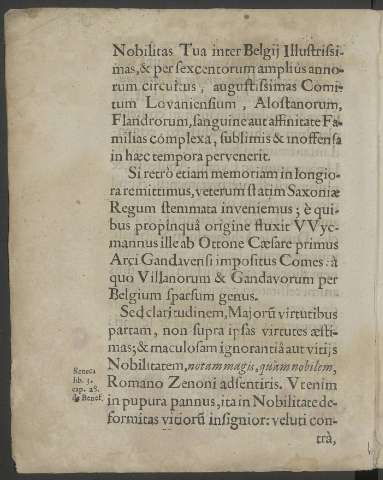 Nobilitas Tua inter Belgij Illustrissi-
mas, & per sexcentorum amplius anno-
rum circuitus, augustissimas Comi-
tum Lovaniensium, Alostanorum,
Flandrorum, sanguine aut affinitate Fa-
milias complexa, sublimis & inoffensa
in hæc tempora pervenerit.
Si retrò etiam memoriam in longio-
ra remittimus, veterum statim Saxoniæ
Regum stemmata inveniemus; è qui-
bus propinquâ origine fluxit VVyc-
mannus ille ab Ottone Cæsare primus
Arci Gandavensi impositus Comes: à
quo Villanorum & Gandavorum per
Belgium sparsum genus.
Sed claritudinem, Majorũ virtutibus
partam, non supra ipsas virtutes æsti-
mas; & maculosam ignorantiâ aut vitijs
Nobilitatem, notam magis, quàm nobilem,
Romano Zenoni adsentiris. Vt enim
in pupura pannus, ita in Nobilitate de-
formitas vitiorũ insignior: veluti con-
trà,
Seneca
lib. 3.
cap. 28.
de Benef.